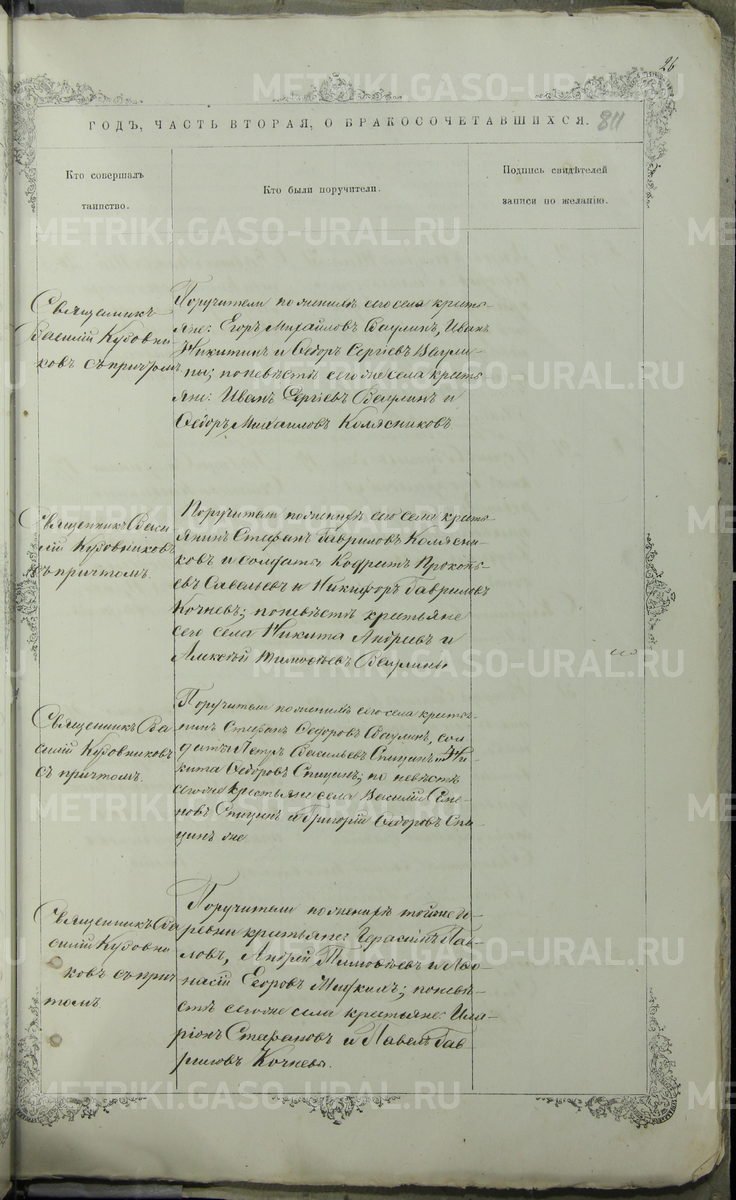 26
METRIKI.GASO-URAL.RU
ГОДЪ, ЧАСТЬ ВТОРАЯ, О БРАКОСОЧЕТАВШИХСЯ. 811
Кто совершалъ
таинство.
Кто были поручители.
Подпись свидѣтелей
записи по желанію.
Священникъ
Василій Кудовни-
ковъ съ причтомъ
Поручители по женихѣ сего села кресть-
яне: Егоръ Михайловъ Ваулинъ, Иванъ
Никитинъ и Ѳедоръ Сергѣевъ Ваули-
ны; по невѣстѣ сего же села кресть-
яне: Иванъ Сергѣевъ Ваулинъ и
Ѳедоръ Михаиловъ Колясниковъ
Священникъ Васи-
лій Кудовниковъ
съ причтомъ.
Поручители по женихѣ сего села кресть-
янинъ Стефанъ Гавриловъ Колясни-
ковъ и солдаты Прокопь-
евъ Савельевъ и Никифоръ Гавриловъ
Кочневъ; по невѣстѣ крестьяне
сего села Никита Андреевъ и
Алексѣй Тимофѣевъ Ваулины
Священникъ Ва-
силій Кудовниковъ
съ причтомъ.
Поручители по женихѣ сего села кресть-
нинъ Стефанъ Ѳедоровъ Ваулинъ, сол
датъ Петръ Васильевъ Спицинъ и Ни-
кита Ѳедоровъ Спицинъ; по невѣстѣ
сего же крестьяне села Василій Семе-
новъ Спицинъ и Григорій Ѳедоровъ Спи-
цинъ же
Священникъ Ва
силій Кудовни
ковъ съ прич
томъ
Поручители по женихѣ той же де-
ревни крестьяне: Герасимъ Пав-
ловъ, Андрей Тимофѣевъ и Аѳо-
насій Егоровъ; по невѣ-
стѣ сего же села крестьяне Ила-
ріонъ Стефановъ и Павелъ Гав
риловъ Кочневы.